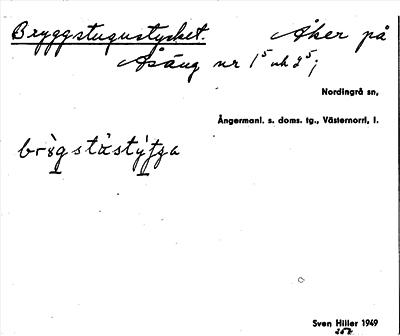 Bryggstugustycket. Åker på
Åsäng nr 1⁵ och 2⁵;
Nordingrå sn,
Ångermanl. s. doms. tg., Västernorrl. l.
Sven Hiller 1949